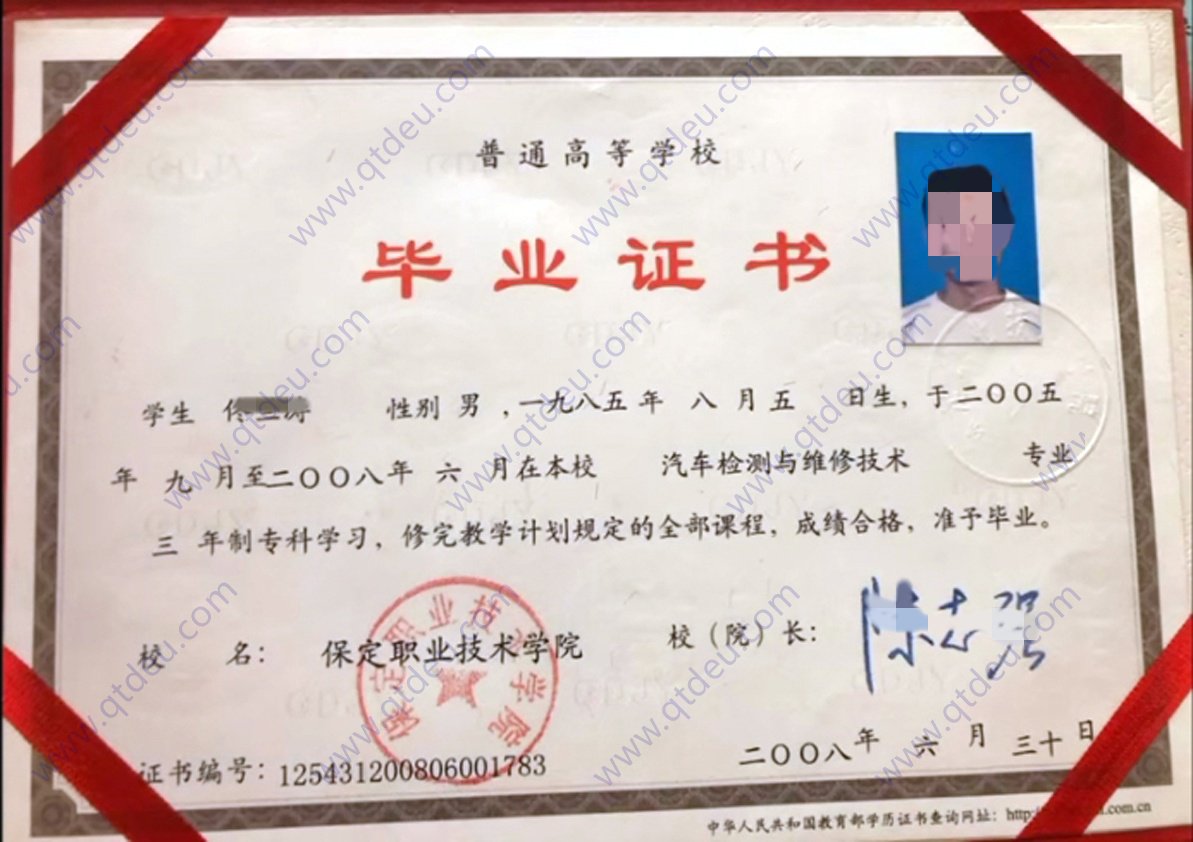 普通高等学校
毕业证书
学生 性别 男 ,一九八五年 八 月 五 日生, 于二〇〇五
年 九 月至二〇〇八年 六 月在本校 汽车检测与维修技术 专业
三 年制专科学习, 修完教学计划规定的全部课程, 成绩合格, 准予毕业。
校 名: 保定职业技术学院 校（院）长:
保定职业技术学院
二〇〇八年 六 月 三十 日
证书编号: 125431200806001783
中华人民共和国教育部学历证书查询网址: http:
www.qtdeu.com